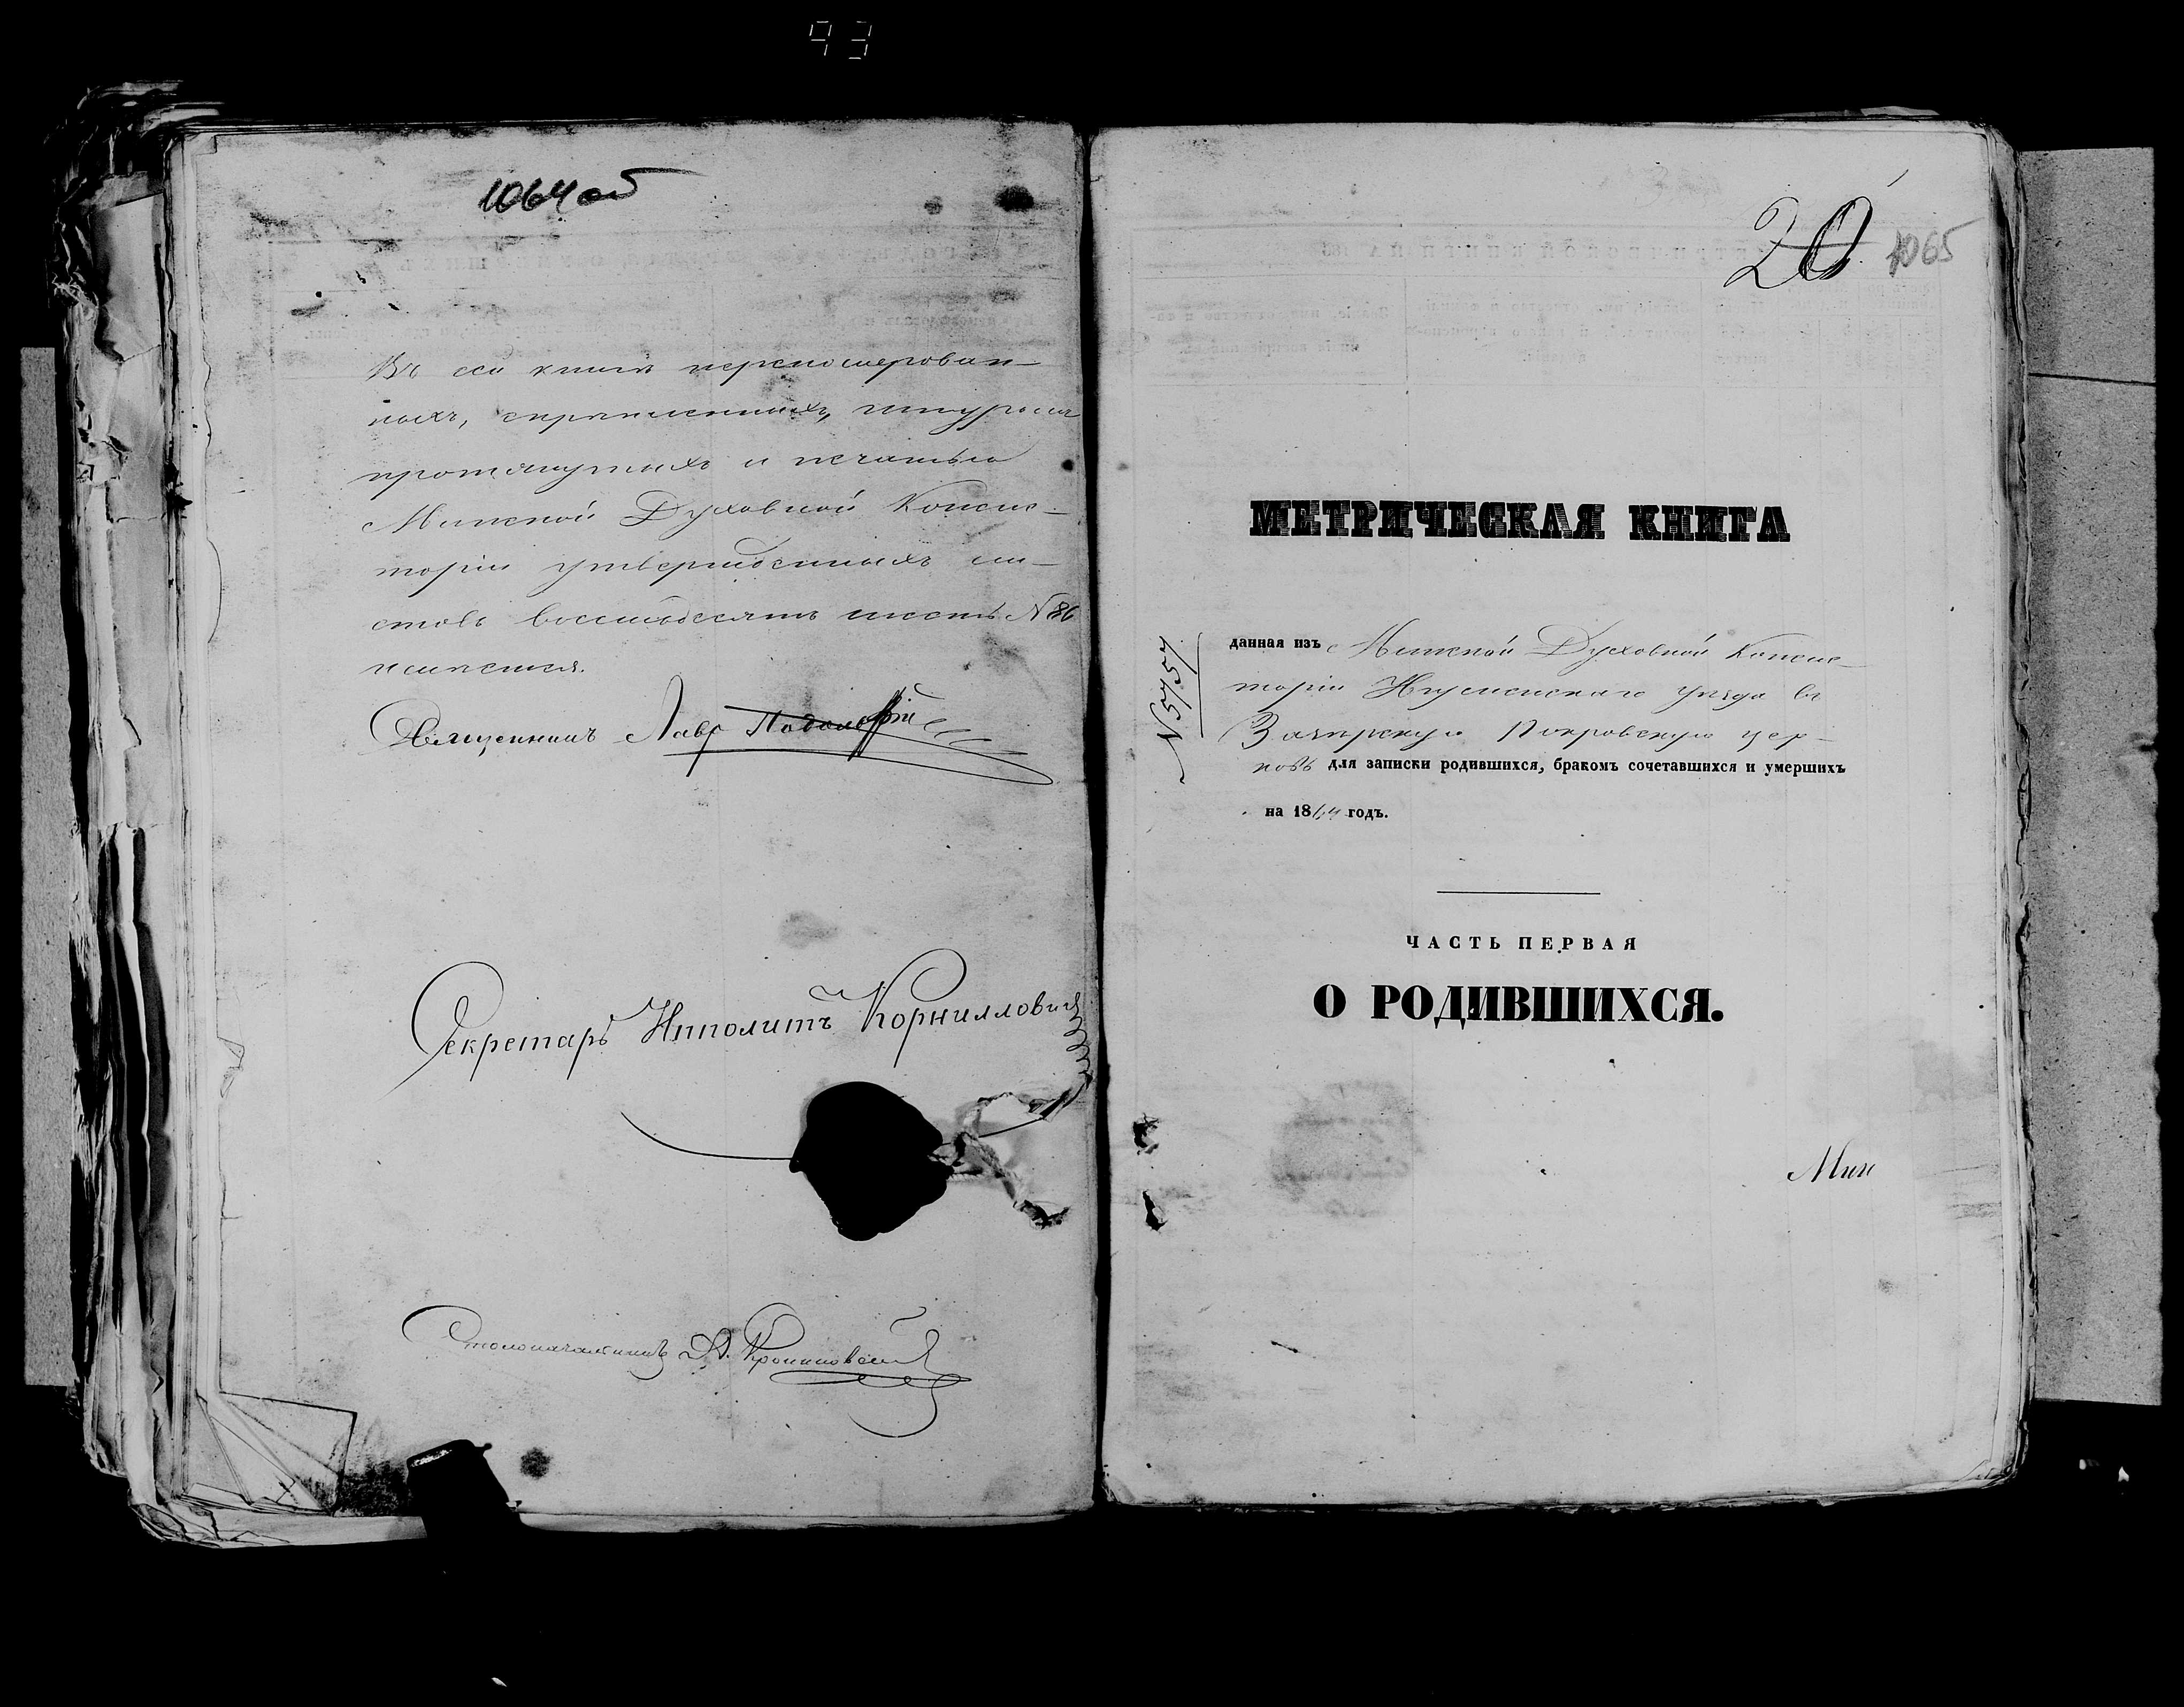 93
1064 об
Въ сей книгѣ перенумерован-
ныхъ, скрѣпленныхъ, шнуромъ
протянутыхъ и печатью
Минской Духовной Консис-
торіи утвержденныхъ ли-
стовъ восемьдесятъ шесть N 86
имѣется.
Священникъ Лавр
Секретарь Ипполитъ Корниллович
Столоначальникъ
20 1065
МЕТРИЧЕСКАЯ КНИГА
N 5757
данная изъ Минской Духовной Консис-
торіи Игуменскаго уѣзда въ
Покровскую цер-
ковь для записки родившихся, бракомъ сочетавшихся и умершихъ
на 1864 годъ.
ЧАСТЬ ПЕРВАЯ
О РОДИВШИХСЯ.
Мин